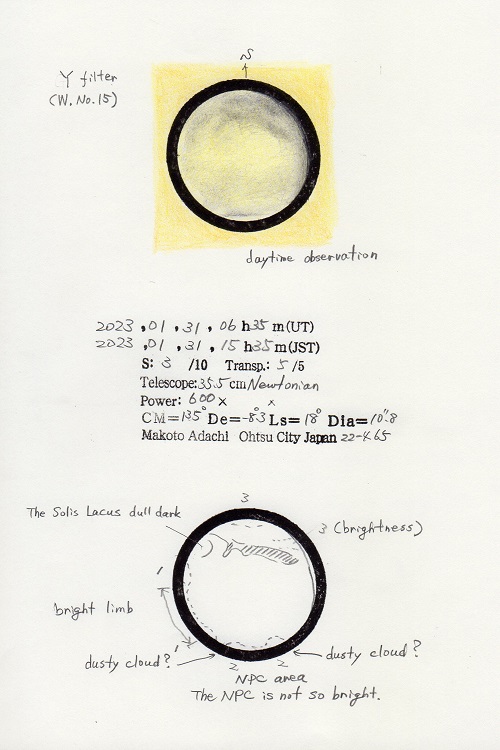 S
Y filter
(W. No. 15)
daytime observation
2023 ,01 ,31 , 06 h 35 m(UT)
2023 ,01 ,31 , 15 h 35 m(JST)
S: 3 /10 Transp.: 5 /5
Telescope: 35.5 cm Newtonian
Power: 600 x x
CM=135° De=-8.3 Ls=18° Dia=10".8
Makoto Adachi Ohtsu City Japan
3
The Solis Lacus dull dark
3 (brightness)
1
bright limb
1
dusty cloud?
dusty cloud?
2 2
NPC area
The NPC is not so bright.